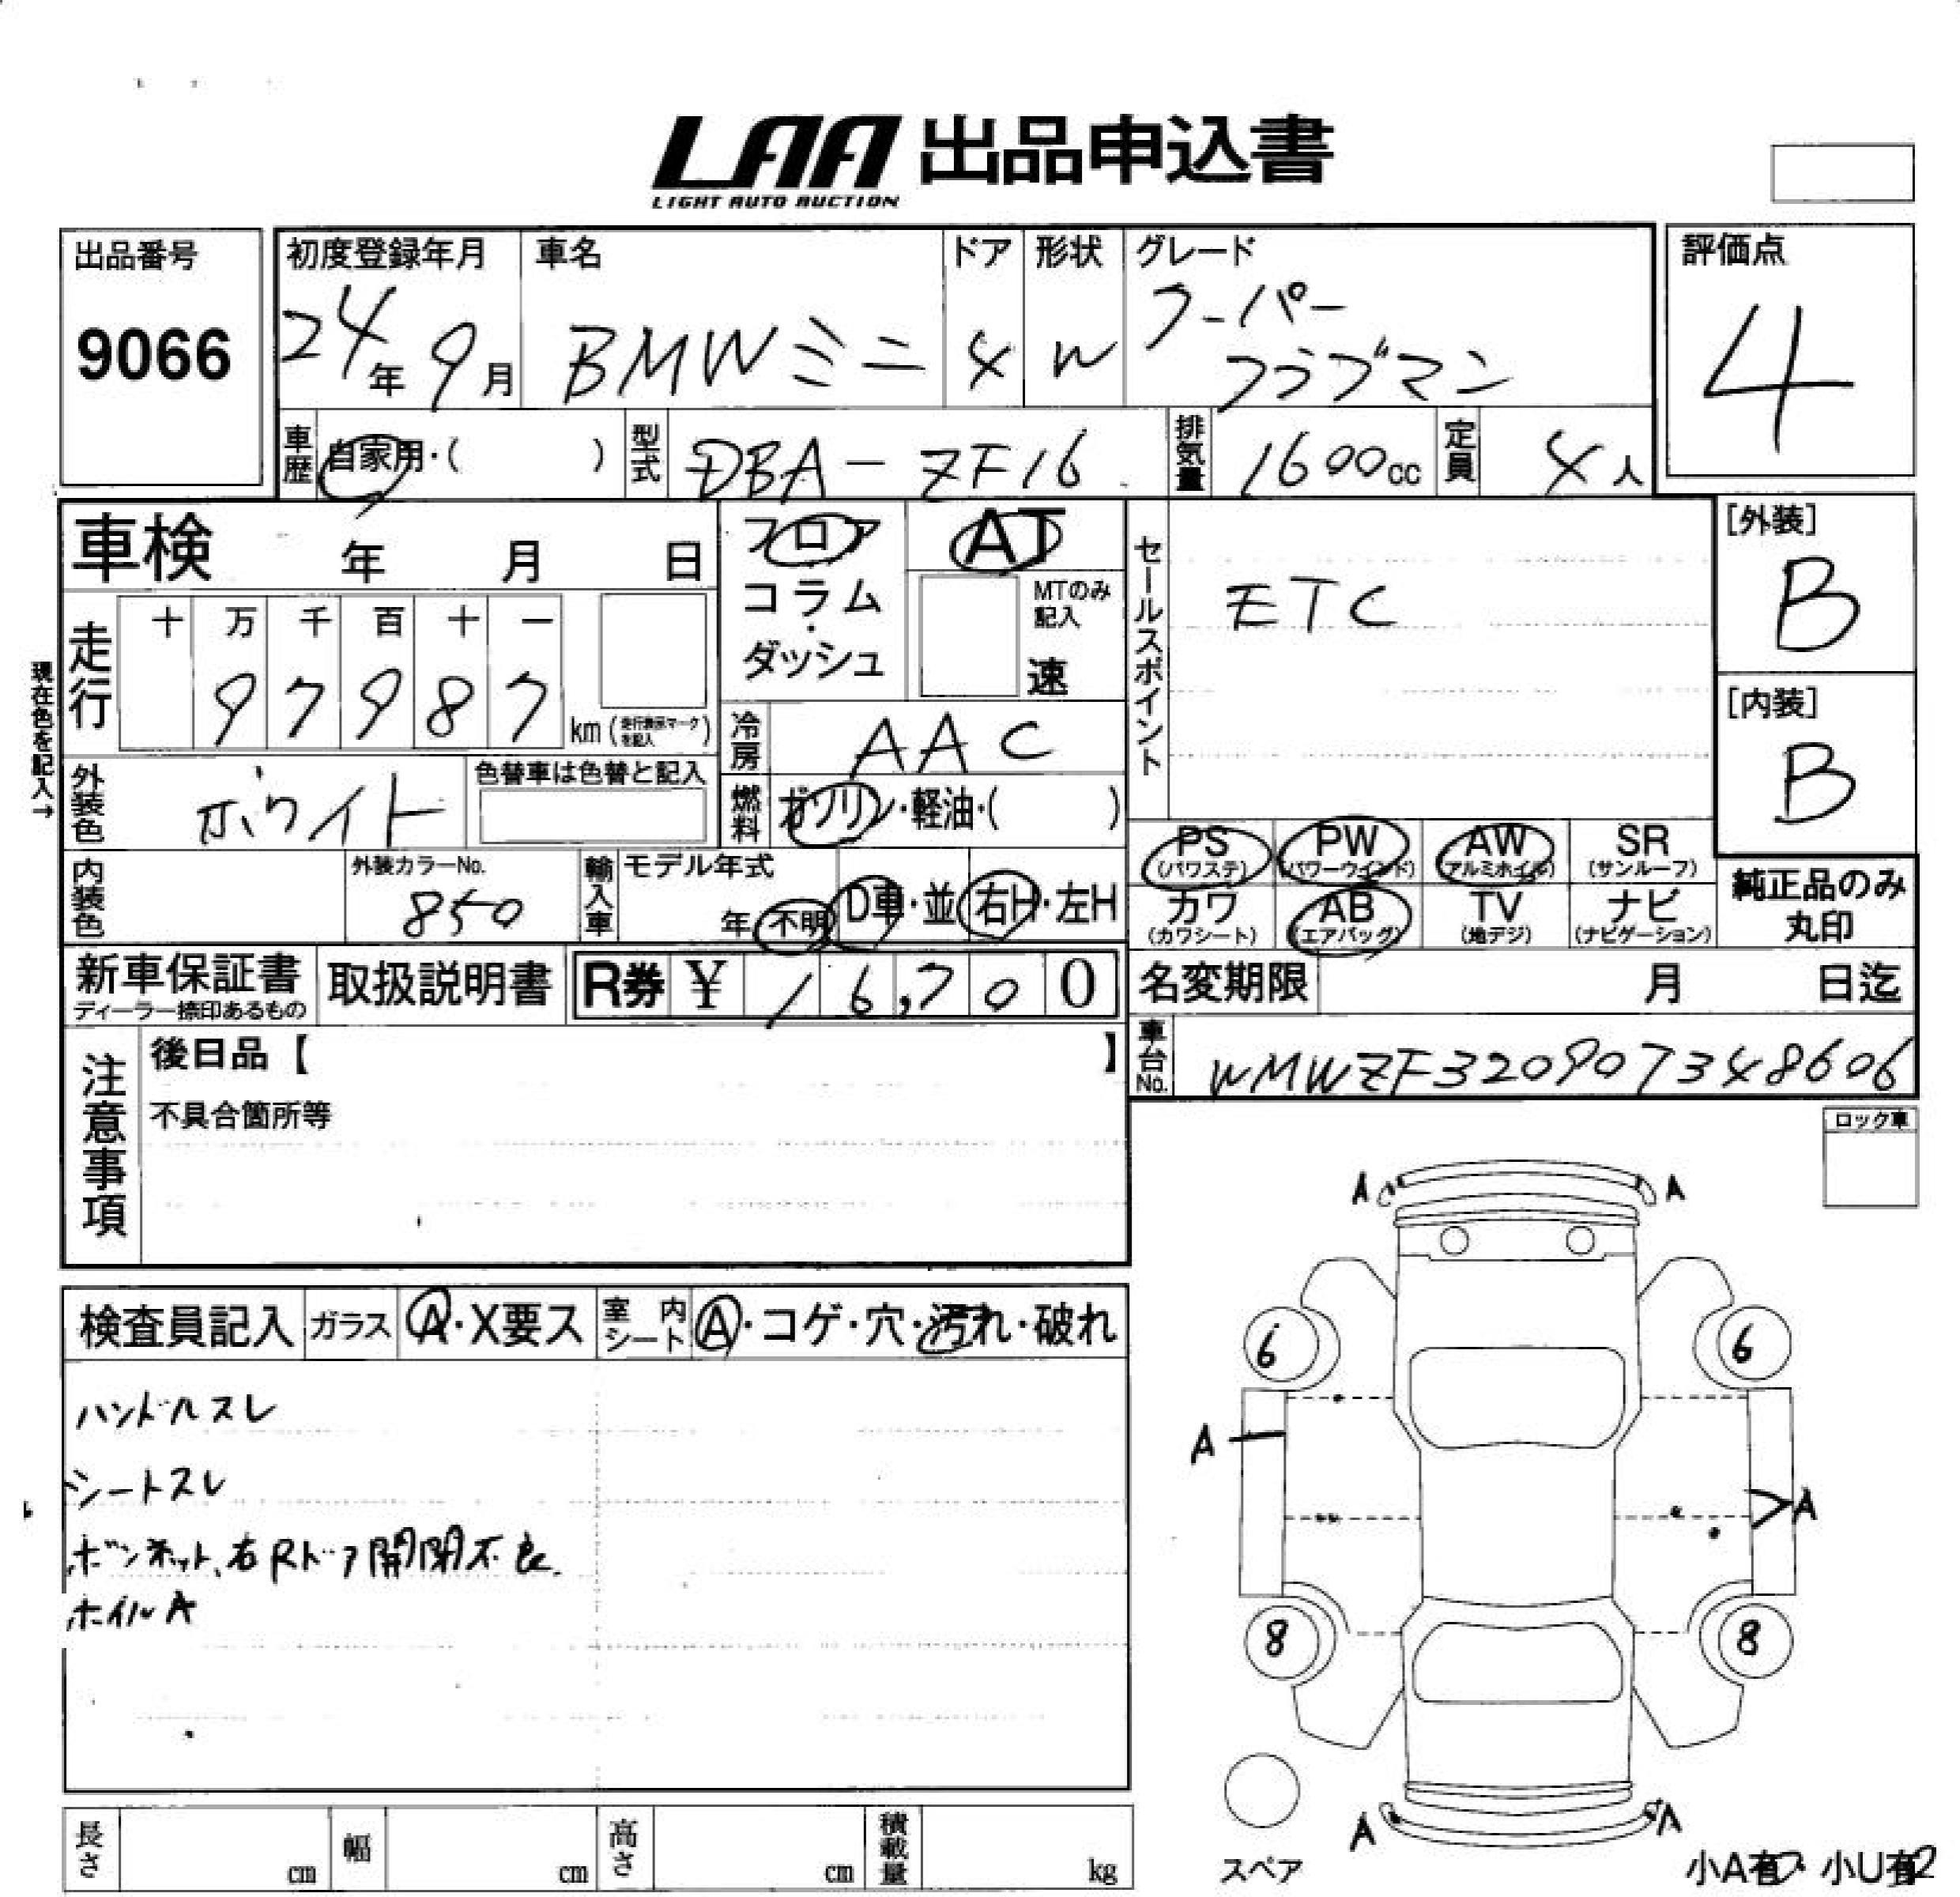 LAA 出品申込書
LIGHT AUTO AUCTION
出品番号
9066
初度登録年月
24年 9月
車名
BMWミニ
ドア
4
形状
W
グレード
クーパー
クラブマン
評価点
4
車歴 自家用・( )
型式 DBA-ZF16
排気量 1600cc
定員 4人
車検 年 月 日
フロア
コラム
・
ダッシュ
AT
MTのみ
記入
速
セールスポイント
ETC
[外装]
B
[内装]
B
現在色を記入→
走行
十 万 千 百 十 一
9 7 9 8 7
km (走行表示マークを記入)
冷房 AAC
外装色 ホワイト
色替車は色替と記入
燃料 ガソリン・軽油・( )
PS (パワステ)
PW (パワーウインド)
AW (アルミホイル)
SR (サンルーフ)
カワ (カワシート)
AB (エアバッグ)
TV (地デジ)
ナビ (ナビゲーション)
純正品のみ
丸印
内装色
外装カラーNo.
850
輸入車
モデル年式
年 不明
D車・並
右H・左H
新車保証書
ディーラー捺印あるもの
取扱説明書
R券 ¥ 16,700
名変期限 月 日迄
車台No. WMWZF320907348606
注意事項
後日品【 】
不具合箇所等
ロック車
検査員記入
ガラス A・X要ス
室内シート A・コゲ・穴・汚れ・破れ
ハンドルスレ
シートスレ
ボンネット、右Rドア開閉不良
ホイルA
A A
6 6
A
A
8 8
A A
スペア
小A有 小U有2
長さ cm
幅 cm
高さ cm
積載量 kg